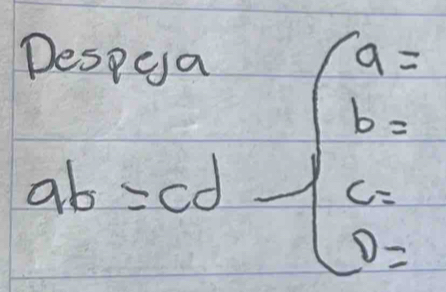 Despeja
ab = cd
a =
b =
c =
D =